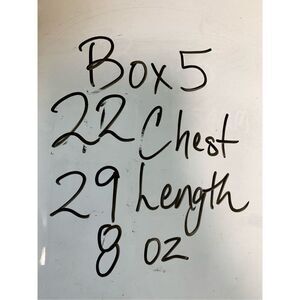 Box 5
22 Chest
29 Length
8 oz